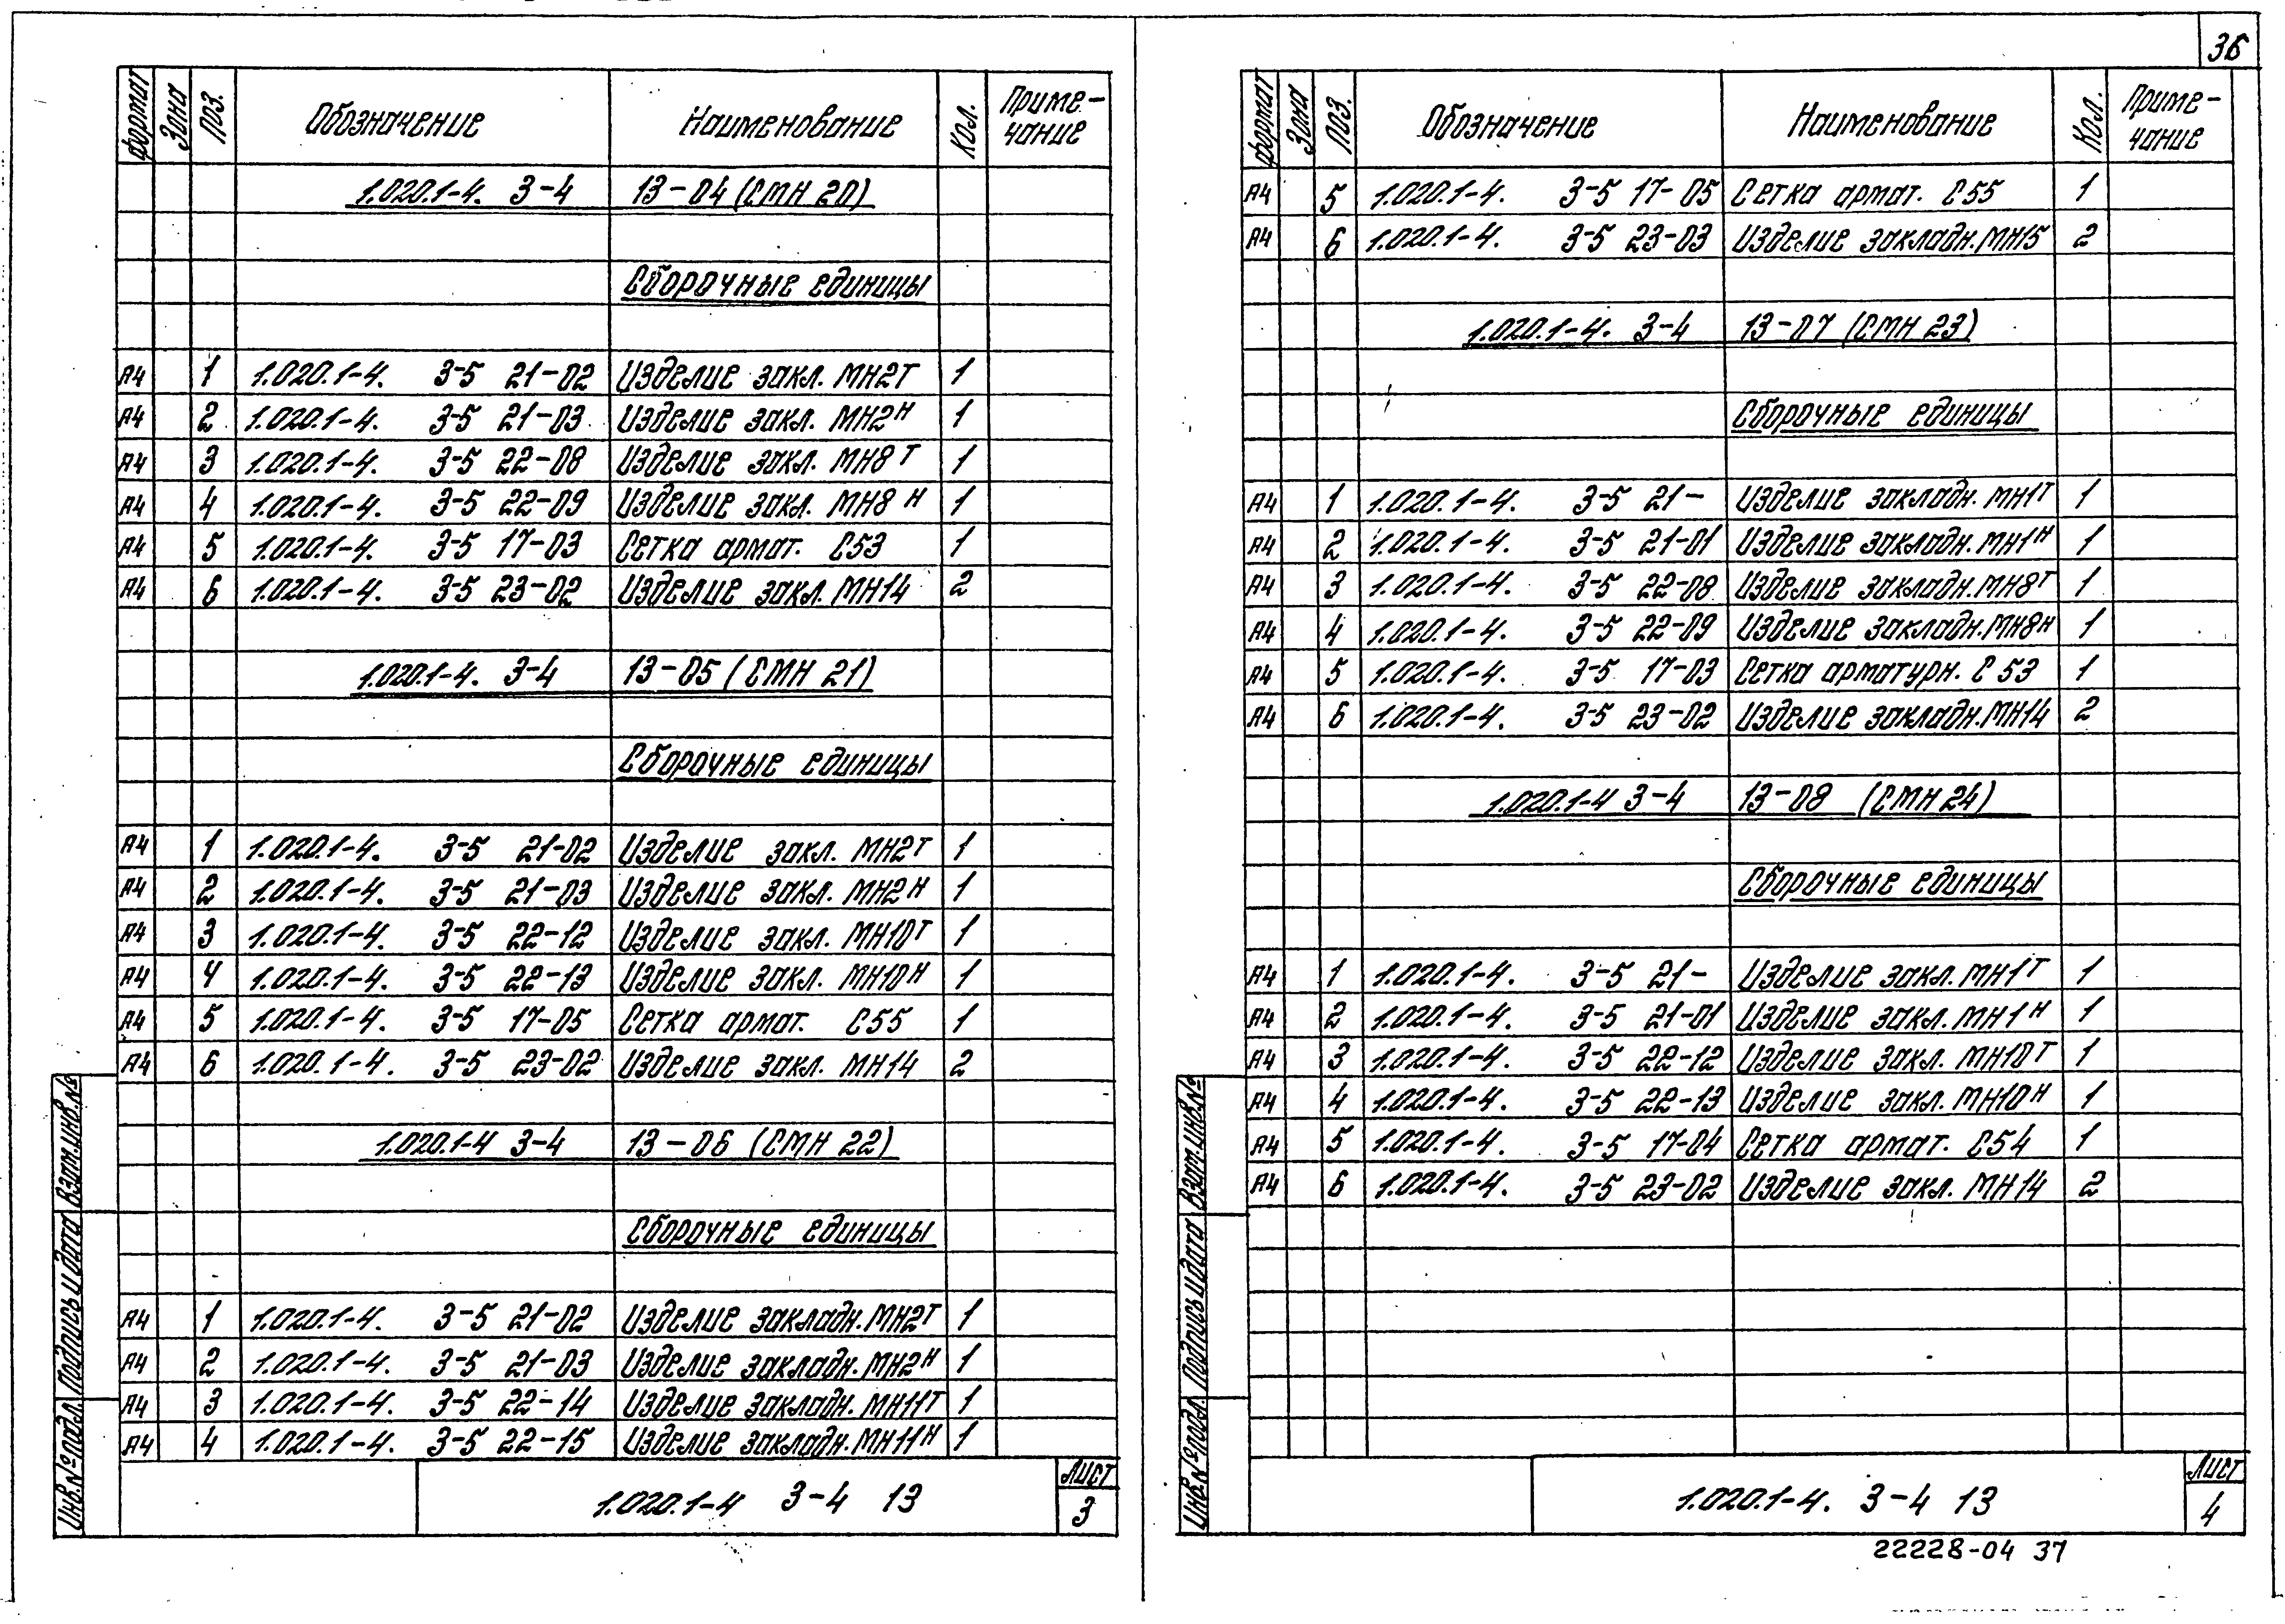 36
Формат Зона Поз. Обозначение Наименование Кол. Приме-
чание
1.020.1-4. 3-4 13-04 (СМН 20)
Сборочные единицы
А4 1 1.020.1-4. 3-5 21-02 Изделие закл. МН2Т 1
А4 2 1.020.1-4. 3-5 21-03 Изделие закл. МН2Н 1
А4 3 1.020.1-4. 3-5 22-08 Изделие закл. МН8Т 1
А4 4 1.020.1-4. 3-5 22-09 Изделие закл. МН8Н 1
А4 5 1.020.1-4. 3-5 17-03 Сетка армат. С53 1
А4 6 1.020.1-4. 3-5 23-02 Изделие закл. МН14 2
1.020.1-4. 3-4 13-05 (СМН 21)
Сборочные единицы
А4 1 1.020.1-4. 3-5 21-02 Изделие закл. МН2Т 1
А4 2 1.020.1-4. 3-5 21-03 Изделие закл. МН2Н 1
А4 3 1.020.1-4. 3-5 22-12 Изделие закл. МН10Т 1
А4 4 1.020.1-4. 3-5 22-13 Изделие закл. МН10Н 1
А4 5 1.020.1-4. 3-5 17-05 Сетка армат. С55 1
А4 6 1.020.1-4. 3-5 23-02 Изделие закл. МН14 2
1.020.1-4 3-4 13-06 (СМН 22)
Сборочные единицы
А4 1 1.020.1-4. 3-5 21-02 Изделие закладн. МН2Т 1
А4 2 1.020.1-4. 3-5 21-03 Изделие закладн. МН2Н 1
А4 3 1.020.1-4. 3-5 22-14 Изделие закладн. МН11Т 1
А4 4 1.020.1-4. 3-5 22-15 Изделие закладн. МН11Н 1
Инв.№ подл. Подпись и дата Взам.инв.№
1.020.1-4 3-4 13
Лист
3
Формат Зона Поз. Обозначение Наименование Кол. Приме-
чание
А4 5 1.020.1-4. 3-5 17-05 Сетка армат. С55 1
А4 6 1.020.1-4. 3-5 23-03 Изделие закладн. МН15 2
1.020.1-4. 3-4 13-07 (СМН 23)
Сборочные единицы
А4 1 1.020.1-4. 3-5 21- Изделие закладн. МН1Т 1
А4 2 1.020.1-4. 3-5 21-01 Изделие закладн. МН1Н 1
А4 3 1.020.1-4. 3-5 22-08 Изделие закладн. МН8Т 1
А4 4 1.020.1-4. 3-5 22-09 Изделие закладн. МН8Н 1
А4 5 1.020.1-4. 3-5 17-03 Сетка арматурн. С 53 1
А4 6 1.020.1-4. 3-5 23-02 Изделие закладн. МН14 2
1.020.1-4 3-4 13-08 (СМН 24)
Сборочные единицы
А4 1 1.020.1-4. 3-5 21- Изделие закл. МН1Т 1
А4 2 1.020.1-4. 3-5 21-01 Изделие закл. МН1Н 1
А4 3 1.020.1-4. 3-5 22-12 Изделие закл. МН10Т 1
А4 4 1.020.1-4. 3-5 22-13 Изделие закл. МН10Н 1
А4 5 1.020.1-4. 3-5 17-04 Сетка армат. С54 1
А4 6 1.020.1-4. 3-5 23-02 Изделие закл. МН14 2
Инв.№ подл. Подпись и дата Взам.инв.№
1.020.1-4. 3-4 13
Лист
4
22228-04 37